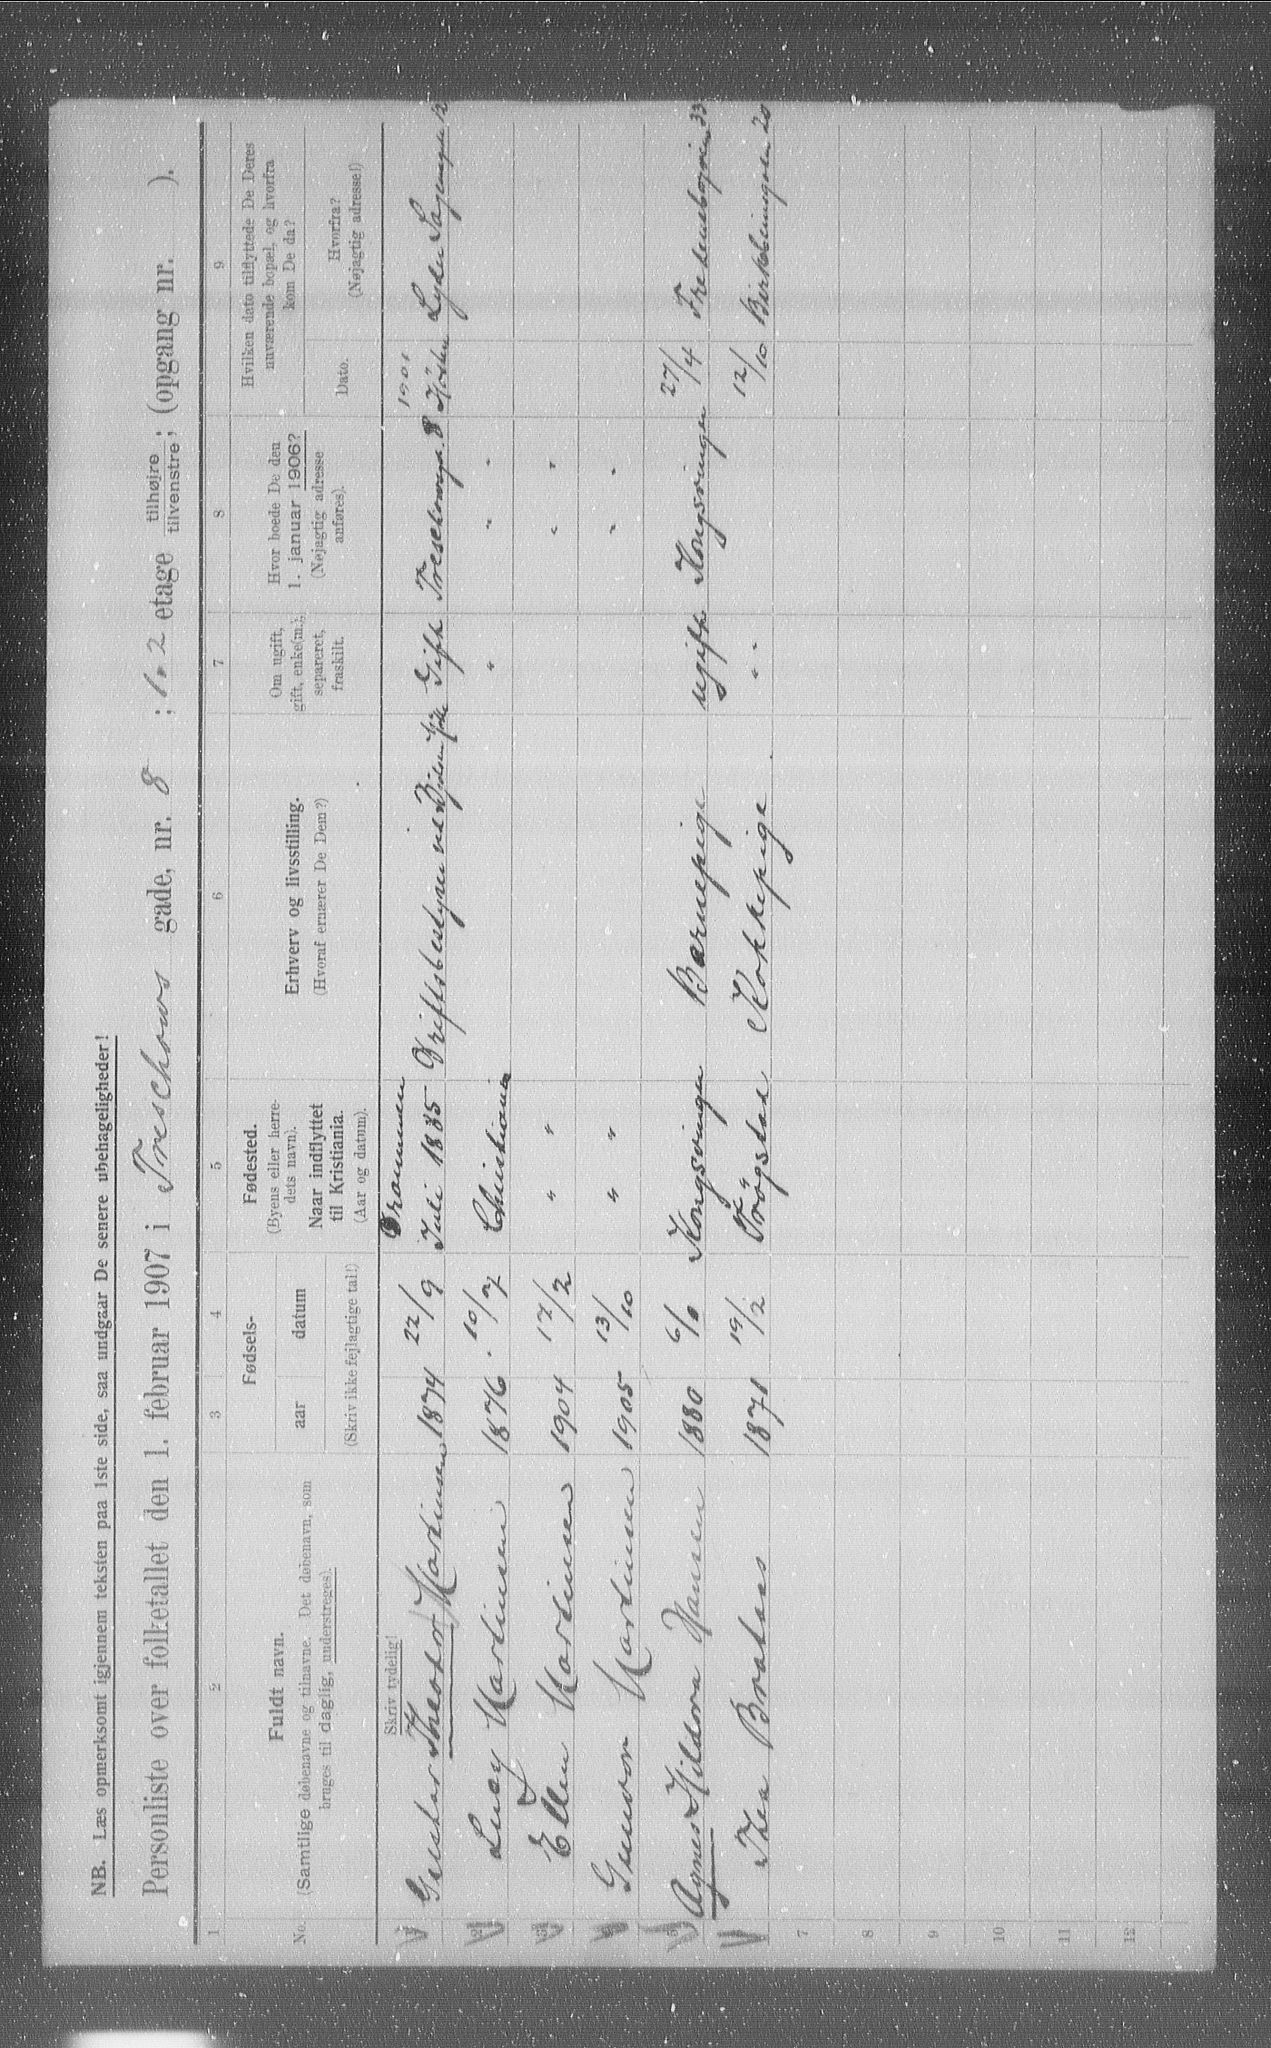 NB. Læs opmerksomt igjennem teksten paa 1ste side, saa undgaar De senere ubehageligheder!
Personliste over folketallet den 1. februar 1907 i Treschows gade, nr. 8 ; 1.2 etage tilhøjre tilvenstre; (opgang nr. ).
1 2 3 4 5 6 7 8 9
No.
Fuldt navn.
(Samtlige døbenavne og tilnavne. Det døbenavn, som
bruges til daglig, understreges).
Fødsels-
aar datum
(Skriv ikke fejlagtige tal!)
Fødested.
(Byens eller herre-
dets navn).
Naar indflyttet
til Kristiania.
(Aar og datum).
Erhverv og livsstilling.
(Hvoraf ernærer De Dem?)
Om ugift,
gift, enke(m.),
separeret,
fraskilt.
Hvor boede De den
1. januar 1906?
(Nøjagtig adresse
anføres).
Hvilken dato tilflyttede De Deres
nuværende bopæl, og hvorfra
kom De da?
Dato.
Hvorfra?
(Nøjagtig adresse!)
Skriv tydelig!
1 Gustav Theodor Martinsen 1874 22/9 Drammen Juli 1885 Driftsbestyrer ved Gift Treschowsga. 8 1901 Høsten
2 Lucy Martinsen 1876 10/7 Christiania " " "
3 Ellen Martinsen 1904 12/2 " " " "
4 Gunvor Martinsen 1905 13/10 " " " "
5 Agnes Hildora Hansen 1880 6/8 Kongsvinger Barnepige ugift Kongsvinger 27/4 33
6 Thea Braataas 1871 19/2 Trøgstad Kokkepige " " 12/10 Birkebeinergaden 20
7
8
9
10
11
12